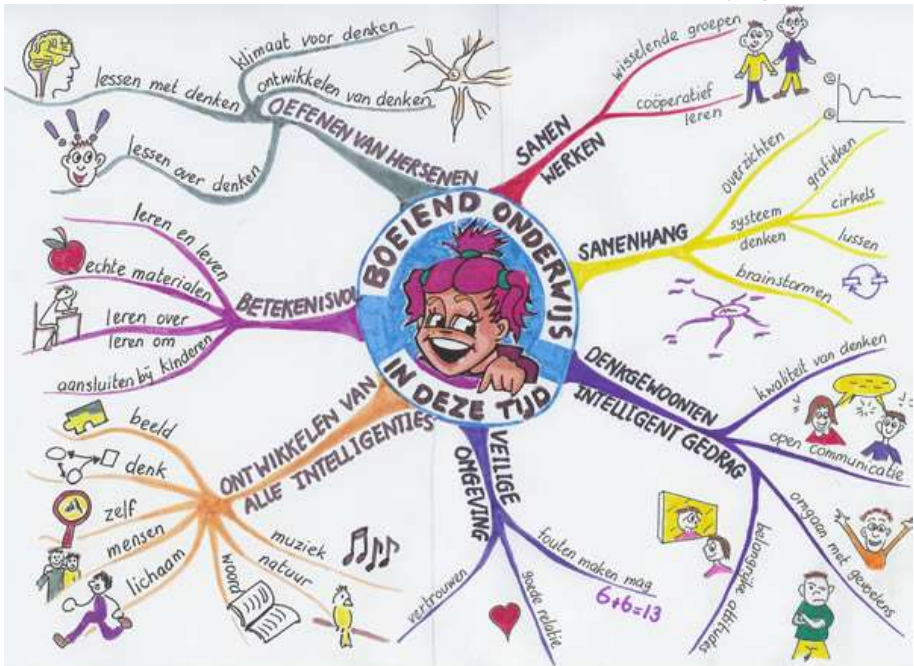 BOEIEND ONDERWIJS
IN DEZE TIJD
OEFENEN VAN HERSENEN
klimaat voor denken
ontwikkelen van denken
lessen met denken
lessen over denken
SAMEN
WERKEN
wisselende groepen
coöperatief
leren
SAMENHANG
overzichten
systeem
denken
grafieken
cirkels
lussen
brainstormen
DENKGEWOONTEN
INTELLIGENT GEDRAG
kwaliteit van denken
open communicatie
omgaan met gevoelens
belangrijke attitudes
VEILIGE
OMGEVING
fouten maken mag
6+6=13
goede relatie
vertrouwen
ONTWIKKELEN VAN
ALLE INTELLIGENTIES
beeld
denk
zelf
mensen
lichaam
woord
natuur
muziek
BETEKENISVOL
leren en leven
echte materialen
leren over
leren om
aansluiten bij kinderen